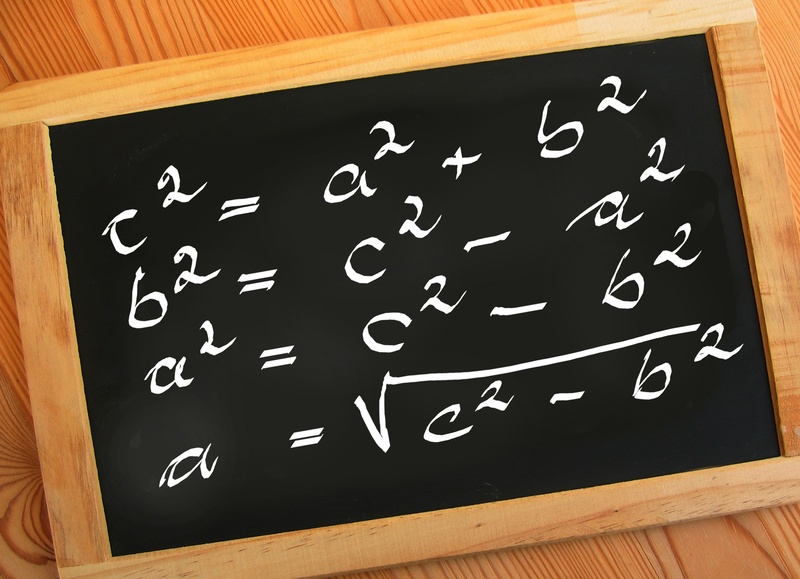 c² = a² + b²
b² = c² - a²
a² = c² - b²
a = √c² - b²